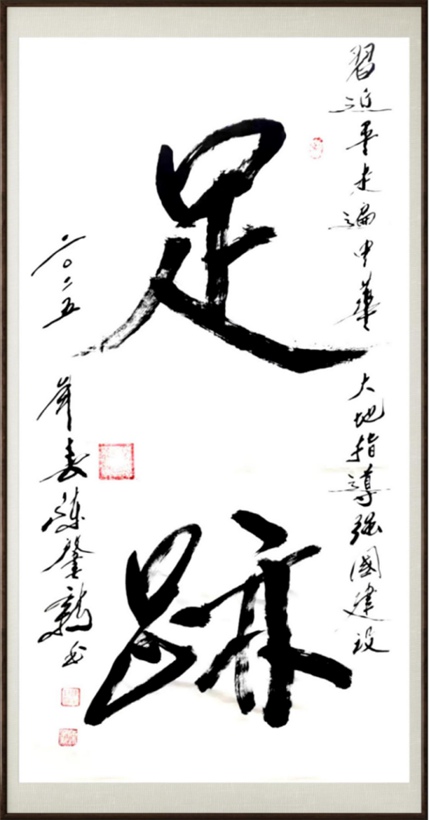 習近平走遍中華大地指導强國建設
足跡
二〇二五年春